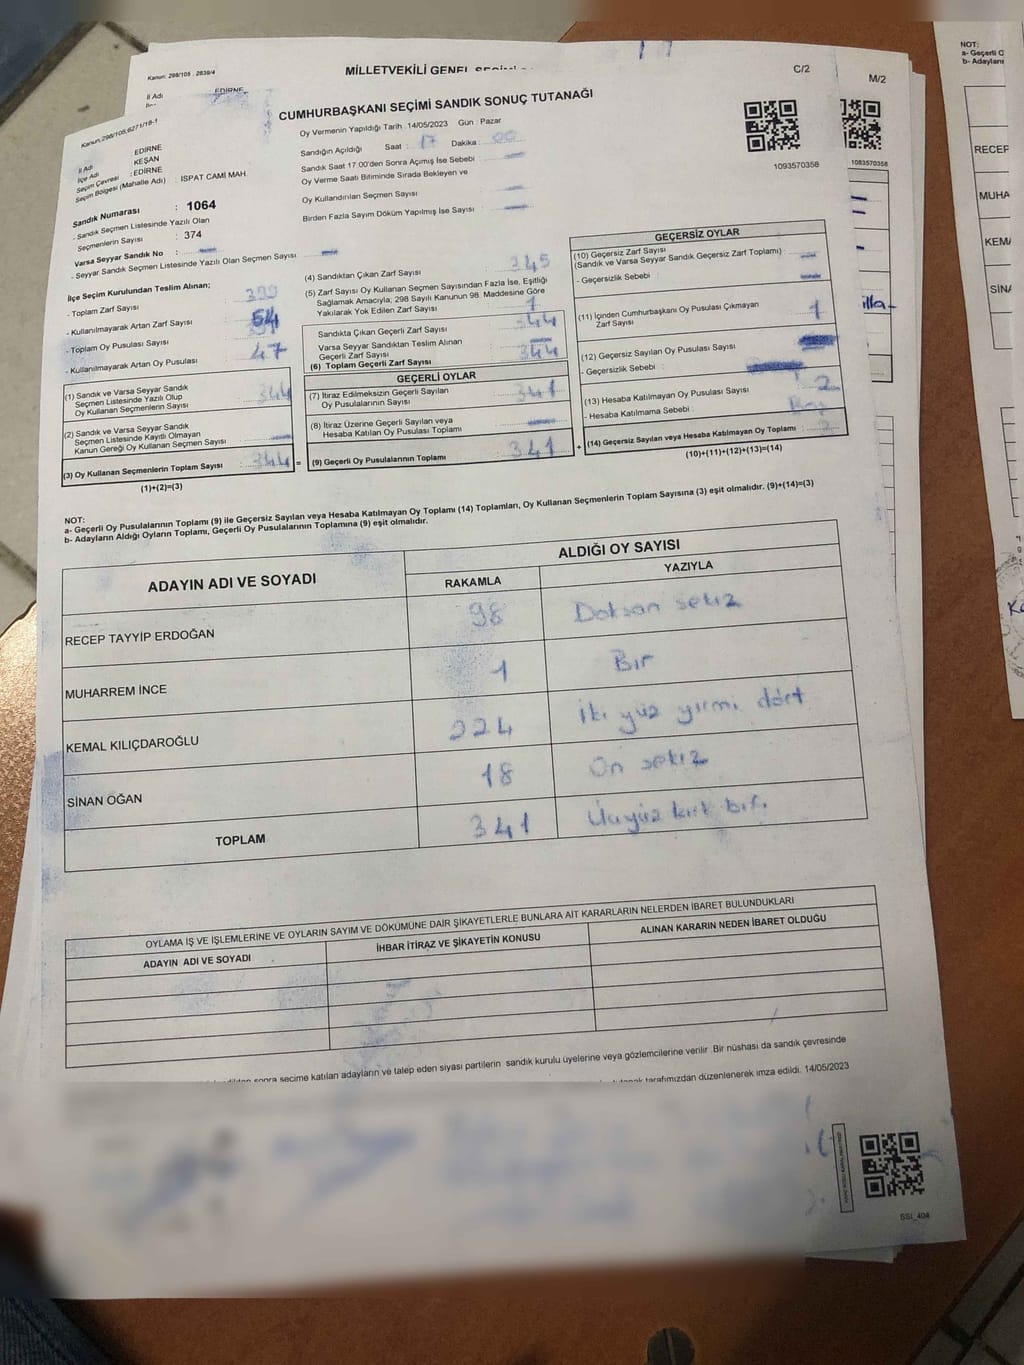 Kanun: 298/105 , 2839/4
MİLLETVEKİLİ GENEL
C/2
M/2
İl Adı
EDİRNE
Kanun:298/105;6271/18-1
CUMHURBAŞKANI SEÇİMİ SANDIK SONUÇ TUTANAĞI
İl Adı
EDİRNE
İlçe Adı
KEŞAN
Seçim Çevresi : EDİRNE
Seçim Bölgesi (Mahalle Adı) : ISPAT CAMİ MAH.
Oy Vermenin Yapıldığı Tarih :14/05/2023 Gün : Pazar
Sandığın Açıldığı Saat : 17 Dakika : 00
Sandık Saat 17:00'den Sonra Açılmış İse Sebebi :
Oy Verme Saati Bitiminde Sırada Bekleyen ve
Oy Kullandırılan Seçmen Sayısı :
Birden Fazla Sayım Döküm Yapılmış İse Sayısı :
1093570358
1083570358
Sandık Numarası : 1064
- Sandık Seçmen Listesinde Yazılı Olan
Seçmenlerin Sayısı : 374
Varsa Seyyar Sandık No :
- Seyyar Sandık Seçmen Listesinde Yazılı Olan Seçmen Sayısı :
İlçe Seçim Kurulundan Teslim Alınan;
- Toplam Zarf Sayısı
- Kullanılmayarak Artan Zarf Sayısı : 54
- Toplam Oy Pusulası Sayısı :
- Kullanılmayarak Artan Oy Pusulası : 47
(1) Sandık ve Varsa Seyyar Sandık
Seçmen Listesinde Yazılı Olup
Oy Kullanan Seçmenlerin Sayısı : 344
(2) Sandık ve Varsa Seyyar Sandık
Seçmen Listesinde Kayıtlı Olmayan
Kanun Gereği Oy Kullanan Seçmen Sayısı :
(3) Oy Kullanan Seçmenlerin Toplam Sayısı : 344 =
(1)+(2)=(3)
(4) Sandıktan Çıkan Zarf Sayısı : 345
(5) Zarf Sayısı Oy Kullanan Seçmen Sayısından Fazla İse, Eşitliği
Sağlamak Amacıyla; 298 Sayılı Kanunun 98. Maddesine Göre
Yakılarak Yok Edilen Zarf Sayısı : 1
Sandıkta Çıkan Geçerli Zarf Sayısı : 344
Varsa Seyyar Sandıktan Teslim Alınan
Geçerli Zarf Sayısı :
(6) Toplam Geçerli Zarf Sayısı : 344
GEÇERLİ OYLAR
(7) İtiraz Edilmeksizin Geçerli Sayılan
Oy Pusulalarının Sayısı : 341
(8) İtiraz Üzerine Geçerli Sayılan veya
Hesaba Katılan Oy Pusulası Toplamı :
(9) Geçerli Oy Pusulalarının Toplamı : 341 +
GEÇERSİZ OYLAR
(10) Geçersiz Zarf Sayısı
(Sandık ve Varsa Seyyar Sandık Geçersiz Zarf Toplamı) :
- Geçersizlik Sebebi :
(11) İçinden Cumhurbaşkanı Oy Pusulası Çıkmayan
Zarf Sayısı : 1
(12) Geçersiz Sayılan Oy Pusulası Sayısı
- Geçersizlik Sebebi :
(13) Hesaba Katılmayan Oy Pusulası Sayısı : 2
- Hesaba Katılmama Sebebi :
(14) Geçersiz Sayılan veya Hesaba Katılmayan Oy Toplamı :
(10)+(11)+(12)+(13)=(14)
NOT:
a- Geçerli Oy Pusulalarının Toplamı (9) ile Geçersiz Sayılan veya Hesaba Katılmayan Oy Toplamı (14) Toplamları, Oy Kullanan Seçmenlerin Toplam Sayısına (3) eşit olmalıdır. (9)+(14)=(3)
b- Adayların Aldığı Oyların Toplamı, Geçerli Oy Pusulalarının Toplamına (9) eşit olmalıdır.
ADAYIN ADI VE SOYADI
ALDIĞI OY SAYISI
RAKAMLA
YAZIYLA
RECEP TAYYİP ERDOĞAN 98 Doksan sekiz
MUHARREM İNCE 1 Bir
KEMAL KILIÇDAROĞLU 224 İki yüz yirmi dört
SİNAN OĞAN 18 On sekiz
TOPLAM 341 Üçyüz kırk bir.
OYLAMA İŞ VE İŞLEMLERİNE VE OYLARIN SAYIM VE DÖKÜMÜNE DAİR ŞİKAYETLERLE BUNLARA AİT KARARLARIN NELERDEN İBARET BULUNDUKLARI
ADAYIN ADI VE SOYADI
İHBAR İTİRAZ VE ŞİKAYETİN KONUSU
ALINAN KARARIN NEDEN İBARET OLDUĞU
sonra seçime katılan adayların ve talep eden siyasi partilerin sandık kurulu üyelerine veya gözlemcilerine verilir. Bir nüshası da sandık çevresinde
tarafımızdan düzenlenerek imza edildi. 14/05/2023
SSI_404
NOT:
a- Geçerli O
b- Adayların
RECEP
MUHA
KEMA
SİNA